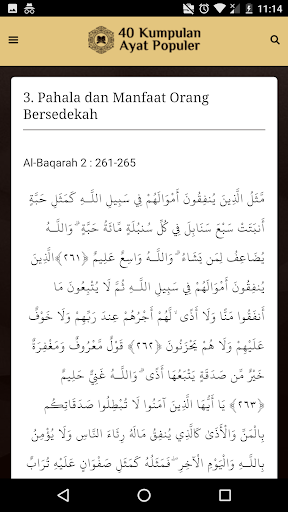 11:14
40 Kumpulan
Ayat Populer
3. Pahala dan Manfaat Orang
Bersedekah
Al-Baqarah 2 : 261-265
مَّثَلُ الَّذِينَ يُنفِقُونَ أَمْوَالَهُمْ فِي سَبِيلِ اللَّـهِ كَمَثَلِ حَبَّةٍ
أَنبَتَتْ سَبْعَ سَنَابِلَ فِي كُلِّ سُنبُلَةٍ مِّائَةُ حَبَّةٍ ۗ وَاللَّـهُ
يُضَاعِفُ لِمَن يَشَاءُ ۗ وَاللَّـهُ وَاسِعٌ عَلِيمٌ ﴿٢٦١﴾الَّذِينَ
يُنفِقُونَ أَمْوَالَهُمْ فِي سَبِيلِ اللَّـهِ ثُمَّ لَا يُتْبِعُونَ مَا
أَنفَقُوا مَنًّا وَلَا أَذًى ۙ لَّهُمْ أَجْرُهُمْ عِندَ رَبِّهِمْ وَلَا خَوْفٌ
عَلَيْهِمْ وَلَا هُمْ يَحْزَنُونَ ﴿٢٦٢﴾ قَوْلٌ مَّعْرُوفٌ وَمَغْفِرَةٌ
خَيْرٌ مِّن صَدَقَةٍ يَتْبَعُهَا أَذًى ۗ وَاللَّـهُ غَنِيٌّ حَلِيمٌ
﴿٢٦٣﴾ يَا أَيُّهَا الَّذِينَ آمَنُوا لَا تُبْطِلُوا صَدَقَاتِكُم
بِالْمَنِّ وَالْأَذَىٰ كَالَّذِي يُنفِقُ مَالَهُ رِئَاءَ النَّاسِ وَلَا يُؤْمِنُ
بِاللَّـهِ وَالْيَوْمِ الْآخِرِ ۖ فَمَثَلُهُ كَمَثَلِ صَفْوَانٍ عَلَيْهِ تُرَابٌ